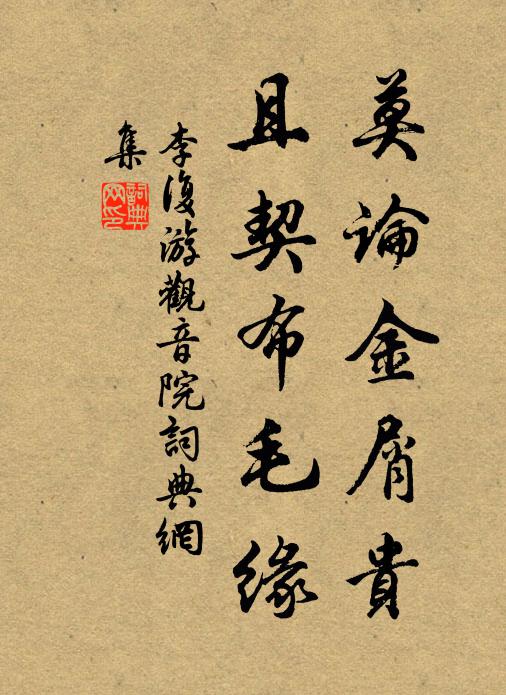 莫論金屑貴
且契布毛緣
李復游觀音院詞典網
集
詞典網印